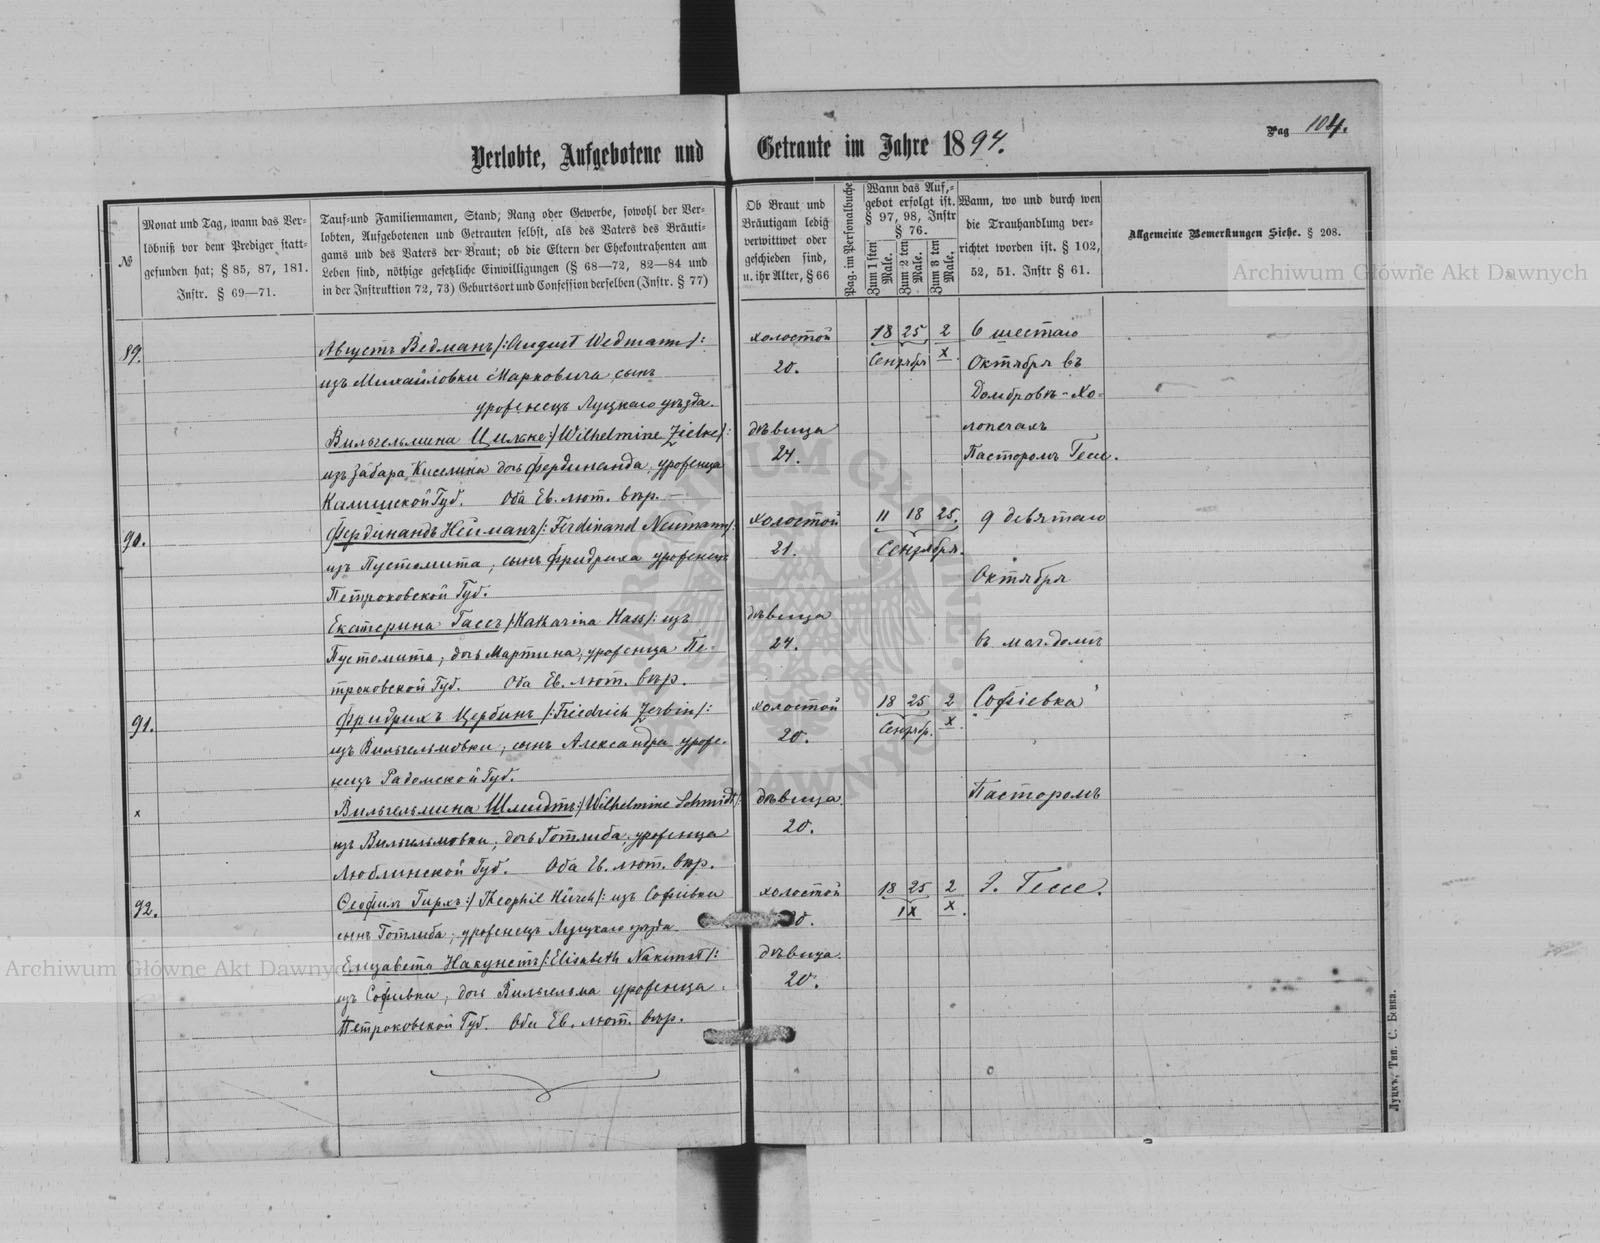 Verlobte, Aufgebotene und Getraute im Jahre 1894.
Pag 104.
№
Monat und Tag, wann das Ver-
löbniß vor dem Prediger statt-
gefunden hat; § 85, 87, 181.
Instr. § 69—71.
Tauf-und Familiennamen, Stand; Rang oder Gewerbe, sowohl der Ver-
lobten, Aufgebotenen und Getrauten selbst, als des Vaters des Bräuti-
gams und des Vaters der Braut; ob die Eltern der Ehekontrahenten am
Leben sind, nöthige gesetzliche Einwilligungen (§ 68—72, 82—84 und
in der Instruktion 72, 73) Geburtsort und Confession derselben (Instr. § 77)
Ob Braut und
Bräutigam ledig
verwittwet oder
geschieden sind,
u. ihr Alter, § 66
Pag. im Personalbuche
Wann das Auf,-
gebot erfolgt ist.
§ 97, 98, Instr
§ 76.
Zum 1 sten Male.
Zum 2 ten Male.
Zum 3 ten Male.
Wann, wo und durch wen
die Trauhandlung ver-
richtet worden ist. § 102,
52, 51. Instr § 61.
Allgemeine Bemerkungen Siehe. § 208.
Archiwum Główne Akt Dawnych
89.
Августъ Ведманъ /: August Wedmann /:
изъ Михайловки Марковича сынъ
уроженецъ Луцкаго уѣзда.
Вильгельмина Цилке :/ Wilhelmine Zielke /:
изъ Забара Киселина дочь Фердинанда, уроженца
Калишской Губ. Оба Ев. лют. вѣр.
холостой
20.
дѣвица
24.
18 25 2
Сентября X
6 шестаго
Октября въ
Домбровкѣ-Хо-
лопечахъ
Пасторомъ Гессе.
90.
Фердинандъ Нейманъ /: Ferdinand Neumann /:
изъ Пустомита, сынъ Фридриха уроженецъ
Петроковской Губ.
Екатерина Гассъ /: Katharina Hass /: изъ
Пустомита, дочь Мартина, уроженца Пе-
троковской Губ. Оба Ев. лют. вѣр.
холостой
21.
дѣвица
24.
11 18 25.
Сентября.
9 девятаго
Октября
въ мол. домѣ
Софіевка
Пасторомъ
Э. Гессе.
91.
Фридрихъ Цербинъ /: Friedrich Zerbin /:
изъ Вильгельмовки, сынъ Александра уроже-
нецъ Радомской Губ.
x
Вильгельмина Шмидтъ :/ Wilhelmine Schmidt /:
изъ Вильгельмовки, дочь Готлиба, уроженца
Люблинской Губ. Оба Ев. лют. вѣр.
холостой
20.
дѣвица
20.
18 25 2
Сентябр. X
92.
Теофилъ Гирхъ :/ Theophil Hürch /: изъ Софіевки
сынъ Готлиба, уроженецъ Луцкаго уѣзда.
Елизавета Накунстъ /: Elisabeth Nakunst /:
изъ Софіевки, дочь Вильгельма уроженца
Петроковской Губ. Оба Ев. лют. вѣр.
холостой
20.
дѣвица
20.
18 25 2
IX X
Archiwum Główne Akt Dawnych
ARCHIWUM GŁÓWNE AKT DAWNYCH
Луцкъ, Тип. С. Бокка.